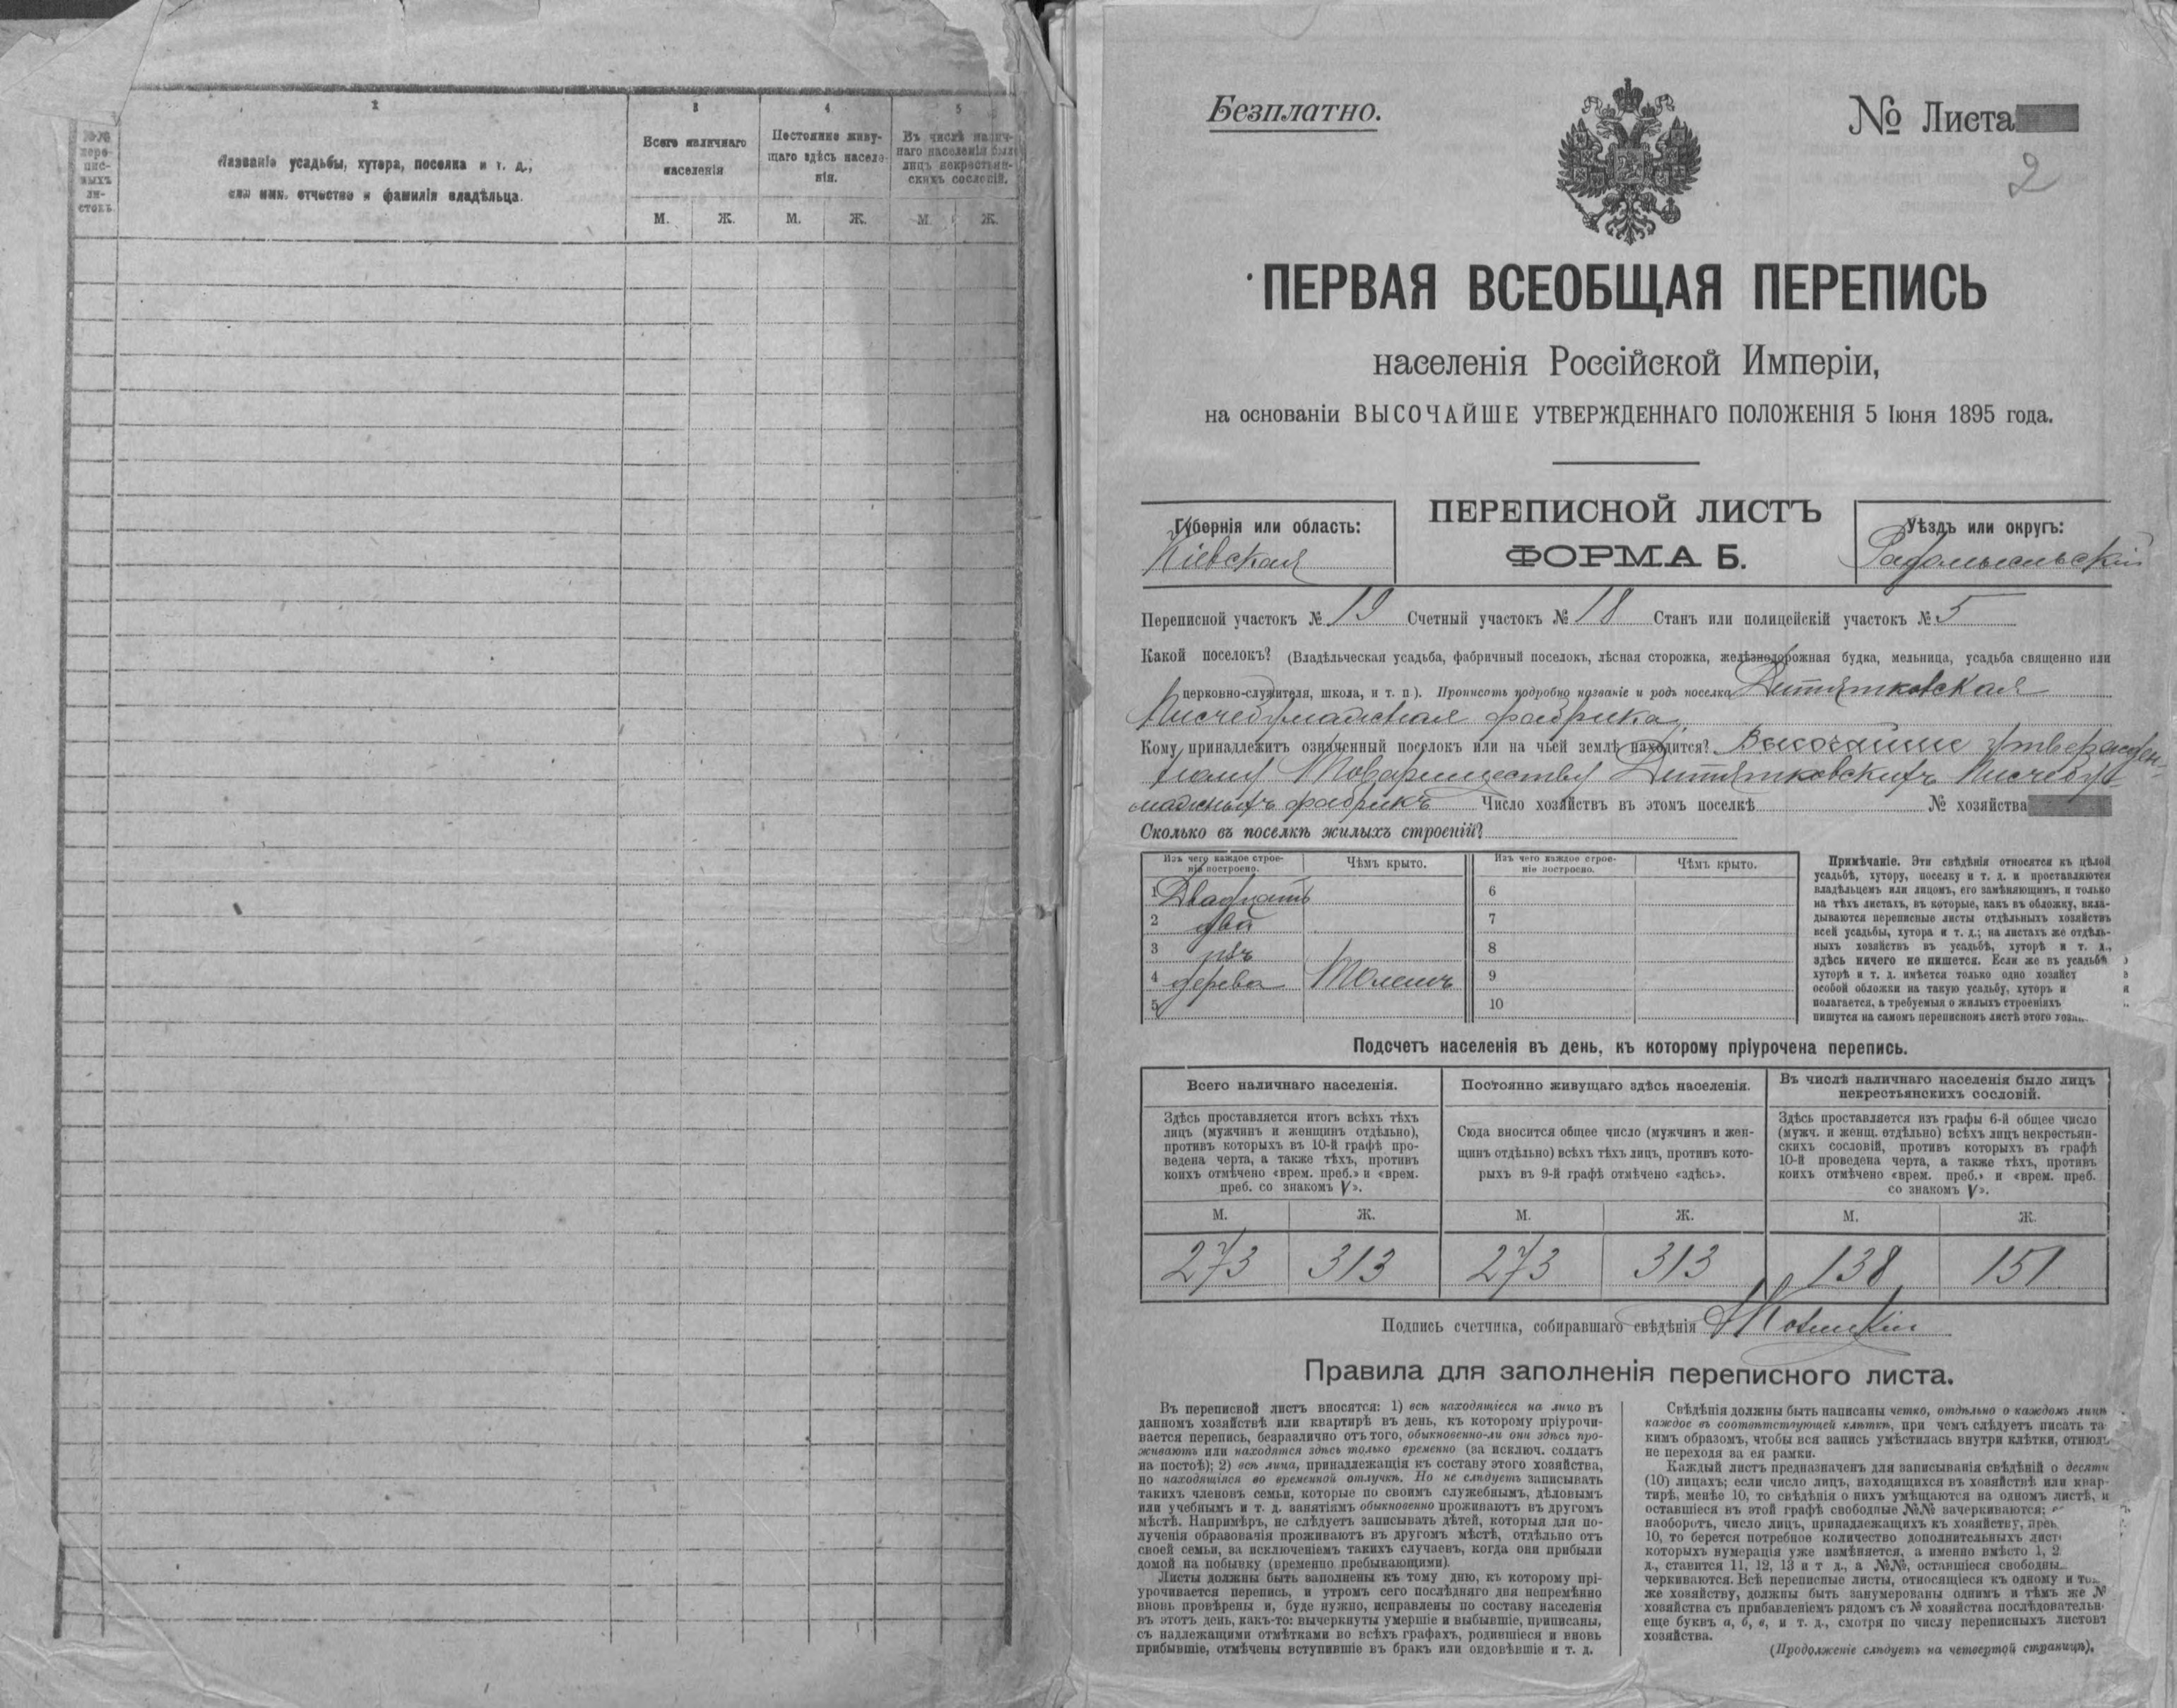 2
3
4
5
№№ пере-
пис-
ныхъ
ли-
стовъ
Названіе усадьбы, хутора, поселка и т. д.,
или имя, отчество и фамилія владѣльца.
Всего наличнаго
населенія
Постоянно живу-
щаго здѣсь населе-
нія.
Въ числѣ налич-
наго населенія было
лицъ некрестьян-
скихъ сословій.
М. Ж. М. Ж. М. Ж.
Безплатно.
№ Листа
2
ПЕРВАЯ ВСЕОБЩАЯ ПЕРЕПИСЬ
населенія Россійской Имперіи,
на основаніи ВЫСОЧАЙШЕ УТВЕРЖДЕННАГО ПОЛОЖЕНІЯ 5 Іюня 1895 года.
Губернія или область:
Кіевская
ПЕРЕПИСНОЙ ЛИСТЪ
ФОРМА Б.
Уѣздъ или округъ:
Радомысльскій
Переписной участокъ № 19 Счетный участокъ № 18 Станъ или полицейскій участокъ № 5
Какой поселокъ? (Владѣльческая усадьба, фабричный поселокъ, лѣсная сторожка, желѣзнодорожная будка, мельница, усадьба священно или
церковно-служителя, школа, и т. п.). Прописать подробно названіе и родъ поселка Дитятковская
Писчебумажная фабрика
Кому принадлежитъ означенный поселокъ или на чьей землѣ находится? Высочайше утвержден-
ному Товариществу Дитятковскихъ Писчебу-
мажныхъ фабрикъ Число хозяйствъ въ этомъ поселкѣ № хозяйства
Сколько въ поселкѣ жилыхъ строеній?
Изъ чего каждое строе-
ніе построено.
Чѣмъ крыто.
Изъ чего каждое строе-
ніе построено.
Чѣмъ крыто.
1 Двадцать 6
2 два 7
3 изъ 8
4 дерева Толемъ 9
5 10
Примѣчаніе. Эти свѣдѣнія относятся къ цѣлой
усадьбѣ, хутору, поселку и т. д. и проставляются
владѣльцемъ или лицомъ, его замѣняющимъ, и только
на тѣхъ листахъ, въ которые, какъ въ обложку, вкла-
дываются переписные листы отдѣльныхъ хозяйствъ
всей усадьбы, хутора и т. д.; на листахъ же отдѣль-
ныхъ хозяйствъ въ усадьбѣ, хуторѣ и т. д.,
здѣсь ничего не пишется. Если же въ усадьбѣ
хуторѣ и т. д. имѣется только одно хозяйст
особой обложки на такую усадьбу, хуторъ и
полагается, а требуемыя о жилыхъ строеніяхъ
пишутся на самомъ переписномъ листѣ этого
Подсчетъ населенія въ день, къ которому пріурочена перепись.
Всего наличнаго населенія.
Здѣсь проставляется итогъ всѣхъ тѣхъ
лицъ (мужчинъ и женщинъ отдѣльно),
противъ которыхъ въ 10-й графѣ про-
ведена черта, а также тѣхъ, противъ
коихъ отмѣчено «врем. преб.» и «врем.
преб. со знакомъ V».
Постоянно живущаго здѣсь населенія.
Сюда вносится общее число (мужчинъ и жен-
щинъ отдѣльно) всѣхъ тѣхъ лицъ, противъ кото-
рыхъ въ 9-й графѣ отмѣчено «здѣсь».
Въ числѣ наличнаго населенія было лицъ
некрестьянскихъ сословій.
Здѣсь проставляется изъ графы 6-й общее число
(мужч. и женщ. отдѣльно) всѣхъ лицъ некрестьян-
скихъ сословій, противъ которыхъ въ графѣ
10-й проведена черта, а также тѣхъ, противъ
коихъ отмѣчено «врем. преб.» и «врем. преб.
со знакомъ V».
М. Ж. М. Ж. М. Ж.
273 313 273 313 138 151
Подпись счетчика, собиравшаго свѣдѣнія
Правила для заполненія переписного листа.
Въ переписной листъ вносятся: 1) всѣ находящіеся на лицо въ
данномъ хозяйствѣ или квартирѣ въ день, къ которому пріурочи-
вается перепись, безразлично отъ того, обыкновенно-ли они здѣсь про-
живаютъ или находятся здѣсь только временно (за исключ. солдатъ
на постоѣ); 2) всѣ лица, принадлежащія къ составу этого хозяйства,
но находящіяся во временной отлучкѣ. Но не слѣдуетъ записывать
такихъ членовъ семьи, которые по своимъ служебнымъ, дѣловымъ
или учебнымъ и т. д. занятіямъ обыкновенно проживаютъ въ другомъ
мѣстѣ. Напримѣръ, не слѣдуетъ записывать дѣтей, которыя для по-
лученія образованія проживаютъ въ другомъ мѣстѣ, отдѣльно отъ
своей семьи, за исключеніемъ такихъ случаевъ, когда они прибыли
домой на побывку (временно пребывающими).
Листы должны быть заполнены къ тому дню, къ которому прі-
урочивается перепись, и утромъ сего послѣдняго дня непремѣнно
вновь провѣрены и, буде нужно, исправлены по составу населенія
въ этотъ день, какъ-то: вычеркнуты умершіе и выбывшіе, приписаны,
съ надлежащими отмѣтками во всѣхъ графахъ, родившіеся и вновь
прибывшіе, отмѣчены вступившіе въ бракъ или овдовѣвшіе и т. д.
Свѣдѣнія должны быть написаны четко, отдѣльно о каждомъ лицѣ
каждое въ соотвѣтствующей клѣткѣ, при чемъ слѣдуетъ писать та
кимъ образомъ, чтобы вся запись умѣстилась внутри клѣтки, отнюдь
не переходя за ея рамки.
Каждый листъ предназначенъ для записыванія свѣдѣній о десяти
(10) лицахъ; если число лицъ, находящихся въ хозяйствѣ или квар-
тирѣ, менѣе 10, то свѣдѣнія о нихъ умѣщаются на одномъ листѣ, и
оставшіеся въ этой графѣ свободные №№ зачеркиваются;
наоборотъ, число лицъ, принадлежащихъ къ хозяйству,
10, то берется потребное количество дополнительныхъ лист
которыхъ нумерація уже измѣняется, а именно вмѣсто 1, 2
д., ставится 11, 12, 13 и т д., а №№, оставшіеся свободны
черкиваются. Всѣ переписные листы, относящіеся къ одному и
же хозяйству, должны быть занумерованы однимъ и тѣмъ же №
хозяйства съ прибавленіемъ рядомъ съ № хозяйства послѣдовательн
еще буквъ а, б, в, и т. д., смотря по числу переписныхъ листовъ
хозяйства.
(Продолженіе слѣдуетъ на четвертой страницѣ).